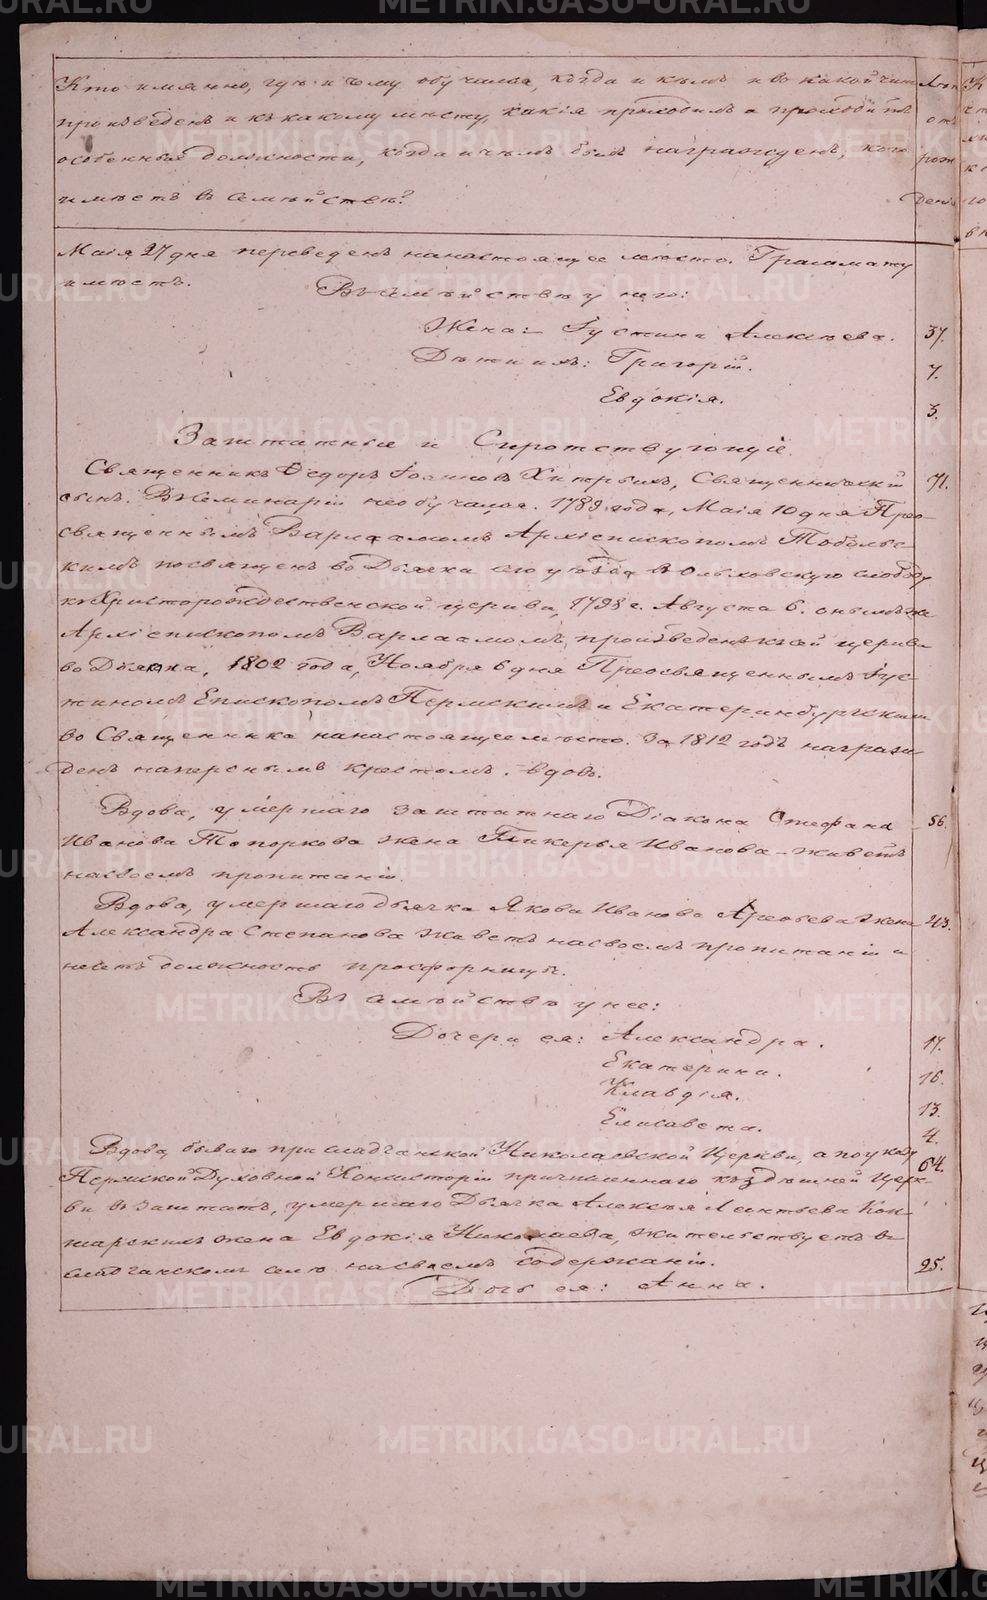 Кто имянно, гдѣ и чему обучился, когда и кѣмъ и во какой чинъ
произведенъ и къ какому мѣсту, какія проходилъ и проходитъ
особенныя должности, когда и чѣмъ былъ награжденъ, кого
имѣетъ въ семѣйствѣ?
Лѣта
отъ
рож
денія
Маія 27 дня переведенъ на настоящее мѣсто. Граммату
имѣетъ.
Въ семѣйствѣ у него:
Жена: Іустина Алексѣева. 37.
Дѣти ихъ: Григорій. 7.
Евдокія. 3.
Заштатные и Сиротствующіе.
Священникъ Ѳедоръ Іоанновъ Священническій 71.
сынъ. Въ Семинаріи не обучался. 1789 года, Маія 10 дня Прео-
священнымъ Варлаамомъ Архіепископомъ Тобольс-
кимъ посвященъ во Дьячка слободу
къ Христорождественской церкви, 1798 г. Августа 6. онымъ же
Архіепископомъ Варлаамомъ произведенъ къ сей церкви
во Діакона, 1802 года, Ноября 6 дня Преосвященнымъ Іус-
тиномъ Епископомъ Пермскимъ и Екатеринбургскимъ
во Священника на настоящее мѣсто. За 1812 годъ награж-
денъ наперснымъ крестомъ. вдовъ.
Вдова, умершаго заштатнаго Діакона Стефана 56.
Иванова Топоркова жена Гликерья Иванова – живетъ
на своемъ пропитаніи.
Вдова, умершаго дьячка Якова Иванова Арефьева жена 43.
Александра Степанова живетъ на своемъ пропитаніи и
несетъ должность просфорницы.
Въ семѣйствѣ у нее:
Дочери ея: Александра. 17.
Екатерина. 16.
Клавдія. 13.
Елисавета. 4.
Вдова, бываго при Николаевской Церкви, а по указу 64.
Пермской Духовной Консисторіи причисленнаго къ здѣшней Церк-
ви въ заштатъ, умершаго Дьячка Алексѣя Леонтьева
жена Евдокія Николаева, жительствуетъ въ
селѣ на своемъ содержаніи.
Дочь ея: Анна. 25.
METRIKI.GASO-URAL.RU